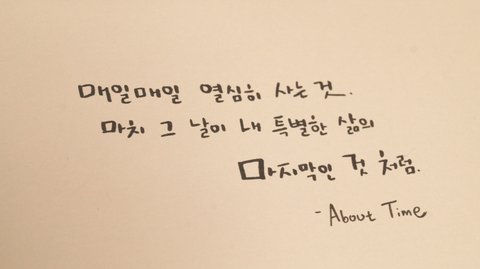 매일매일 열심히 사는 것.
마치 그 날이 내 특별한 삶의
마지막인 것 처럼.
- About Time